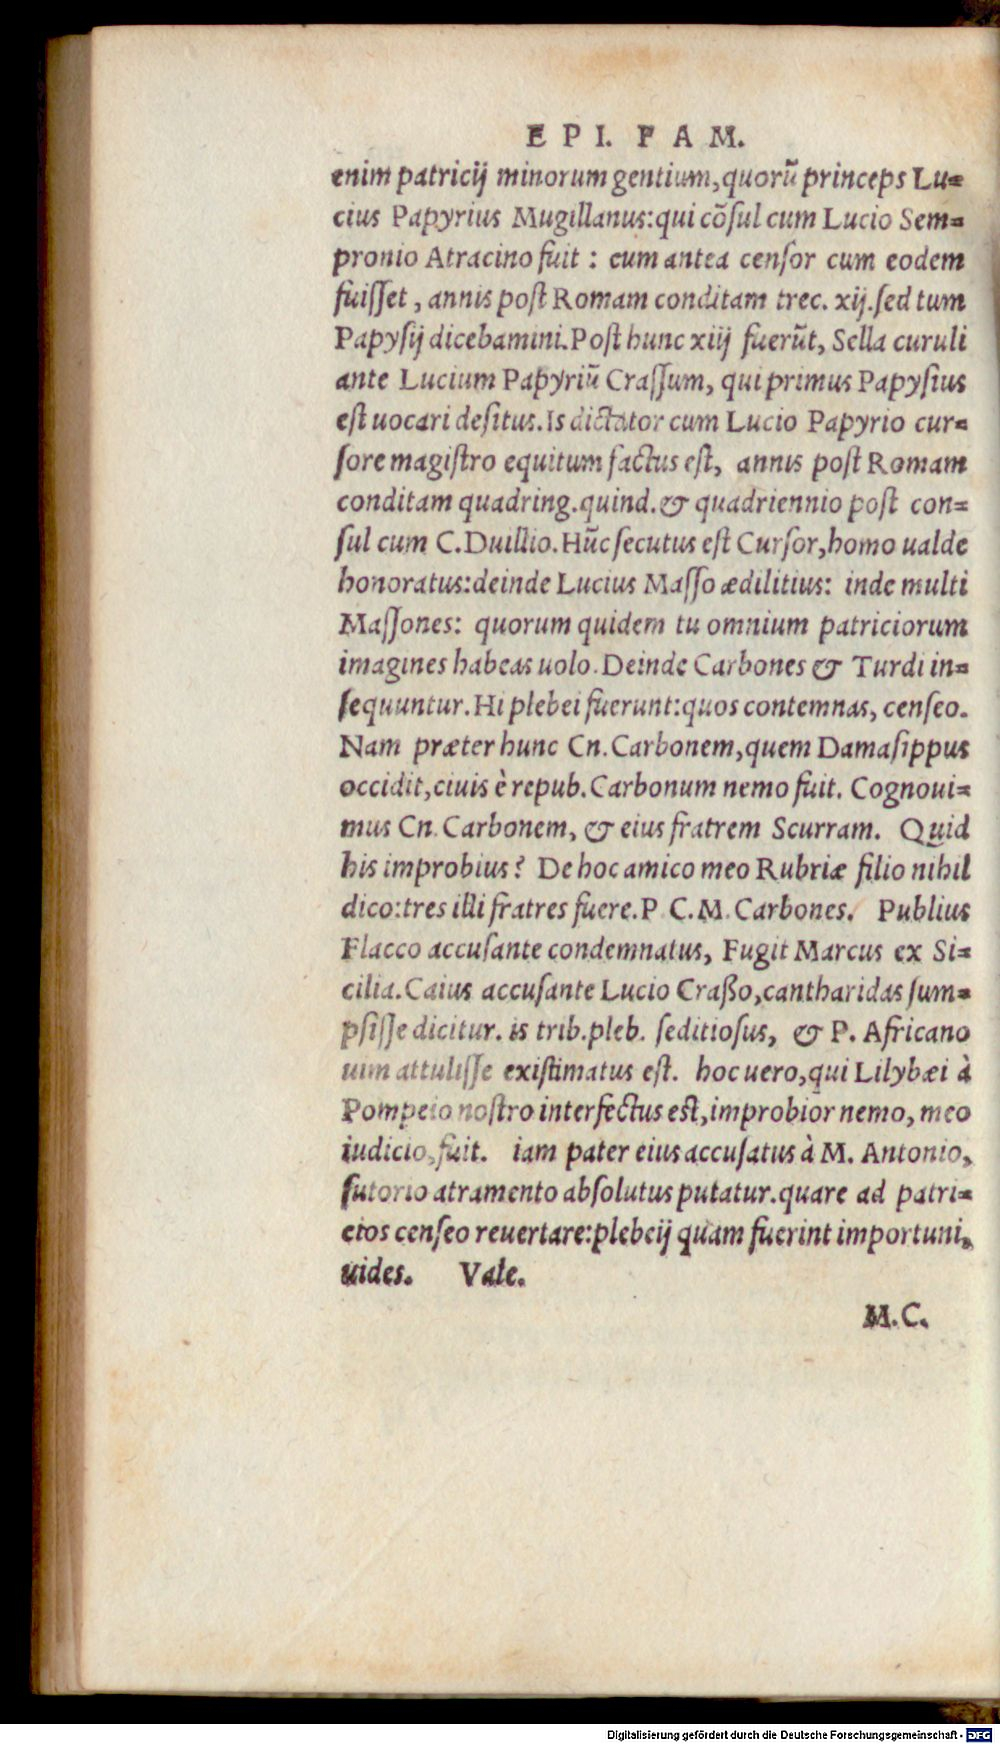 EPI. FAM.
enim patricij minorum gentium, quorũ princeps Lu=
cius Papyrius Mugillanus: qui cõſul cum Lucio Sem=
pronio Atracino fuit : cum antea cenſor cum eodem
fuiſſet, annis poſt Romam conditam trec. xij. ſed tum
Papyſij dicebamini. Poſt hunc xiij fuerũt, Sella curuli
ante Lucium Papyriũ Craſſum, qui primus Papyſius
eſt uocari deſitus. Is dictator cum Lucio Papyrio cur=
ſore magiſtro equitum factus eſt, annis poſt Romam
conditam quadring. quind. & quadriennio poſt con=
ſul cum C. Duillio. Hũc ſecutus eſt Curſor, homo ualde
honoratus: deinde Lucius Maſſo ædilitius: inde multi
Maſſones: quorum quidem tu omnium patriciorum
imagines habeas uolo. Deinde Carbones & Turdi in=
ſequuntur. Hi plebei fuerunt: quos contemnas, cenſeo.
Nam præter hunc Cn. Carbonem, quem Damaſippus
occidit, ciuis è repub. Carbonum nemo fuit. Cognoui=
mus Cn. Carbonem, & eius fratrem Scurram. Quid
his improbius? De hoc amico meo Rubriæ filio nihil
dico: tres illi fratres fuere. P. C. M. Carbones. Publius
Flacco accuſante condemnatus, Fugit Marcus ex Si=
cilia. Caius accuſante Lucio Craßo, cantharidas ſum=
pſiſſe dicitur. is trib. pleb. ſeditioſus, & P. Africano
uim attuliſſe exiſtimatus eſt. hoc uero, qui Lilybæi à
Pompeio noſtro interfectus eſt, improbior nemo, meo
iudicio, fuit. iam pater eius accuſatus à M. Antonio,
ſutorio atramento abſolutus putatur. quare ad patri=
cios cenſeo reuertare: plebeij quàm fuerint importuni,
uides. Vale.
M. C.
Digitalisierung gefördert durch die Deutsche Forschungsgemeinschaft - DFG